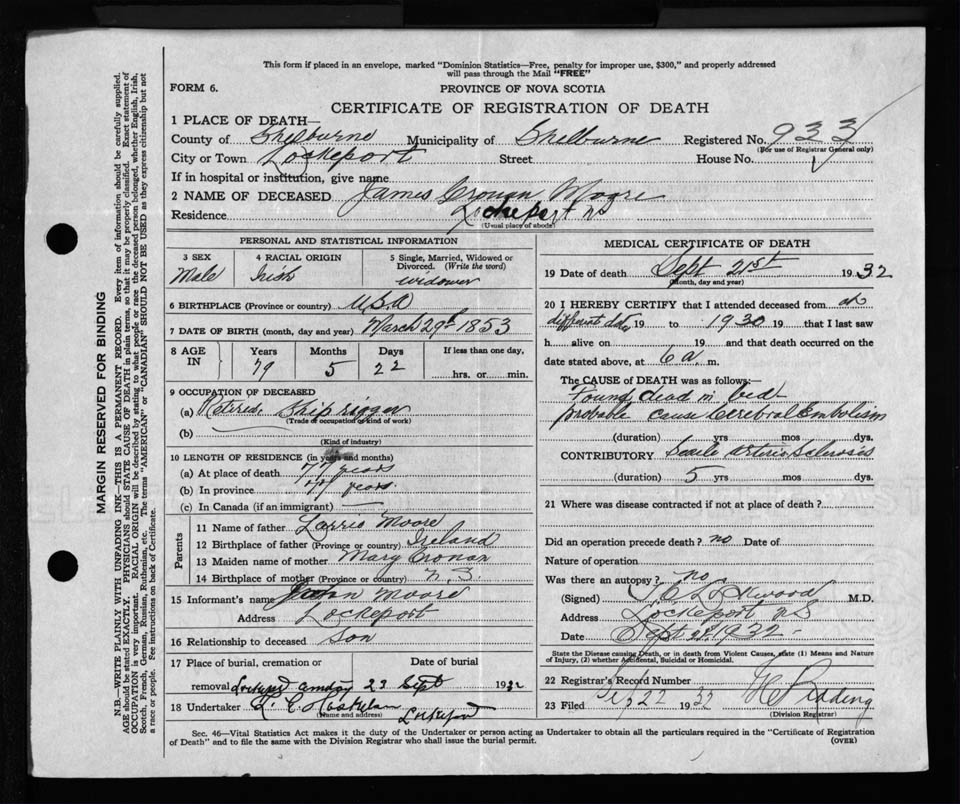 This form if placed in an envelope, marked "Dominion Statistics—Free, penalty for improper use, $300," and properly addressed
will pass through the Mail "FREE"
FORM 6.
PROVINCE OF NOVA SCOTIA
CERTIFICATE OF REGISTRATION OF DEATH
1 PLACE OF DEATH—
County of Shelburne Municipality of Shelburne Registered No. 933
(For use of Registrar General only)
City or Town Lockeport Street House No.
If in hospital or institution, give name
2 NAME OF DECEASED James Cronan Moore
Residence Lockeport NS
(Usual place of abode)
PERSONAL AND STATISTICAL INFORMATION
3 SEX 4 RACIAL ORIGIN 5 Single, Married, Widowed or
Divorced. (Write the word)
Male Irish widower
6 BIRTHPLACE (Province or country) U.S.A
7 DATE OF BIRTH (month, day and year) March 29th 1853
8 AGE IN Years Months Days If less than one day,
79 5 22 hrs. or min.
9 OCCUPATION OF DECEASED
(a) Retired Ship rigger
(Trade or occupation or kind of work)
(b)
(Kind of industry)
10 LENGTH OF RESIDENCE (in years and months)
(a) At place of death 77 years
(b) In province 77 years.
(c) In Canada (if an immigrant) —
Parents
11 Name of father Larrie Moore
12 Birthplace of father (Province or country) Ireland
13 Maiden name of mother Mary Cronan
14 Birthplace of mother (Province or country) N.S.
15 Informant's name Moore
Address Lockeport
16 Relationship to deceased Son
17 Place of burial, cremation or Date of burial
removal 23 Sept 1932
18 Undertaker
(Name and address) Lockeport
MEDICAL CERTIFICATE OF DEATH
19 Date of death Sept 21st 1932
(Month, day and year)
20 I HEREBY CERTIFY that I attended deceased from at
different dates 19 to 1930 19 that I last saw
h alive on 19 and that death occurred on the
date stated above, at 6 a. m.
The CAUSE of DEATH was as follows:—
Found dead in bed
probable cause Cerebral Embolism
(duration) yrs mos dys.
CONTRIBUTORY Senile Arterio Sclerosis
(duration) 5 yrs mos dys.
21 Where was disease contracted if not at place of death?
Did an operation precede death? no Date of
Nature of operation
Was there an autopsy? no
(Signed) Lockwood M.D.
Address Lockeport NS
Date Sept 22 1932 -
State the Disease causing Death, or in death from Violent Causes, state (1) Means and Nature
of Injury, (2) whether Accidental, Suicidal or Homicidal.
22 Registrar's Record Number
23 Filed 22 1932
(Division Registrar)
Sec. 46—Vital Statistics Act makes it the duty of the Undertaker or person acting as Undertaker to obtain all the particulars required in the "Certificate of Registration
of Death" and to file the same with the Division Registrar who shall issue the burial permit. (OVER)
MARGIN RESERVED FOR BINDING
N.B.—WRITE PLAINLY WITH UNFADING INK—THIS IS A PERMANENT RECORD. Every item of information should be carefully supplied.
AGE should be stated EXACTLY. PHYSICIANS should STATE CAUSE OF DEATH in plain terms, so that it may be properly classified. Exact statement of
OCCUPATION is very important. RACIAL ORIGIN will be described by stating to what people or race the deceased person belonged, whether English, Irish,
Scotch, French, German, Russian, Ruthenian, etc. The terms "AMERICAN" or "CANADIAN" SHOULD NOT BE USED as they express citizenship but not
a race or people. See instructions on back of Certificate.